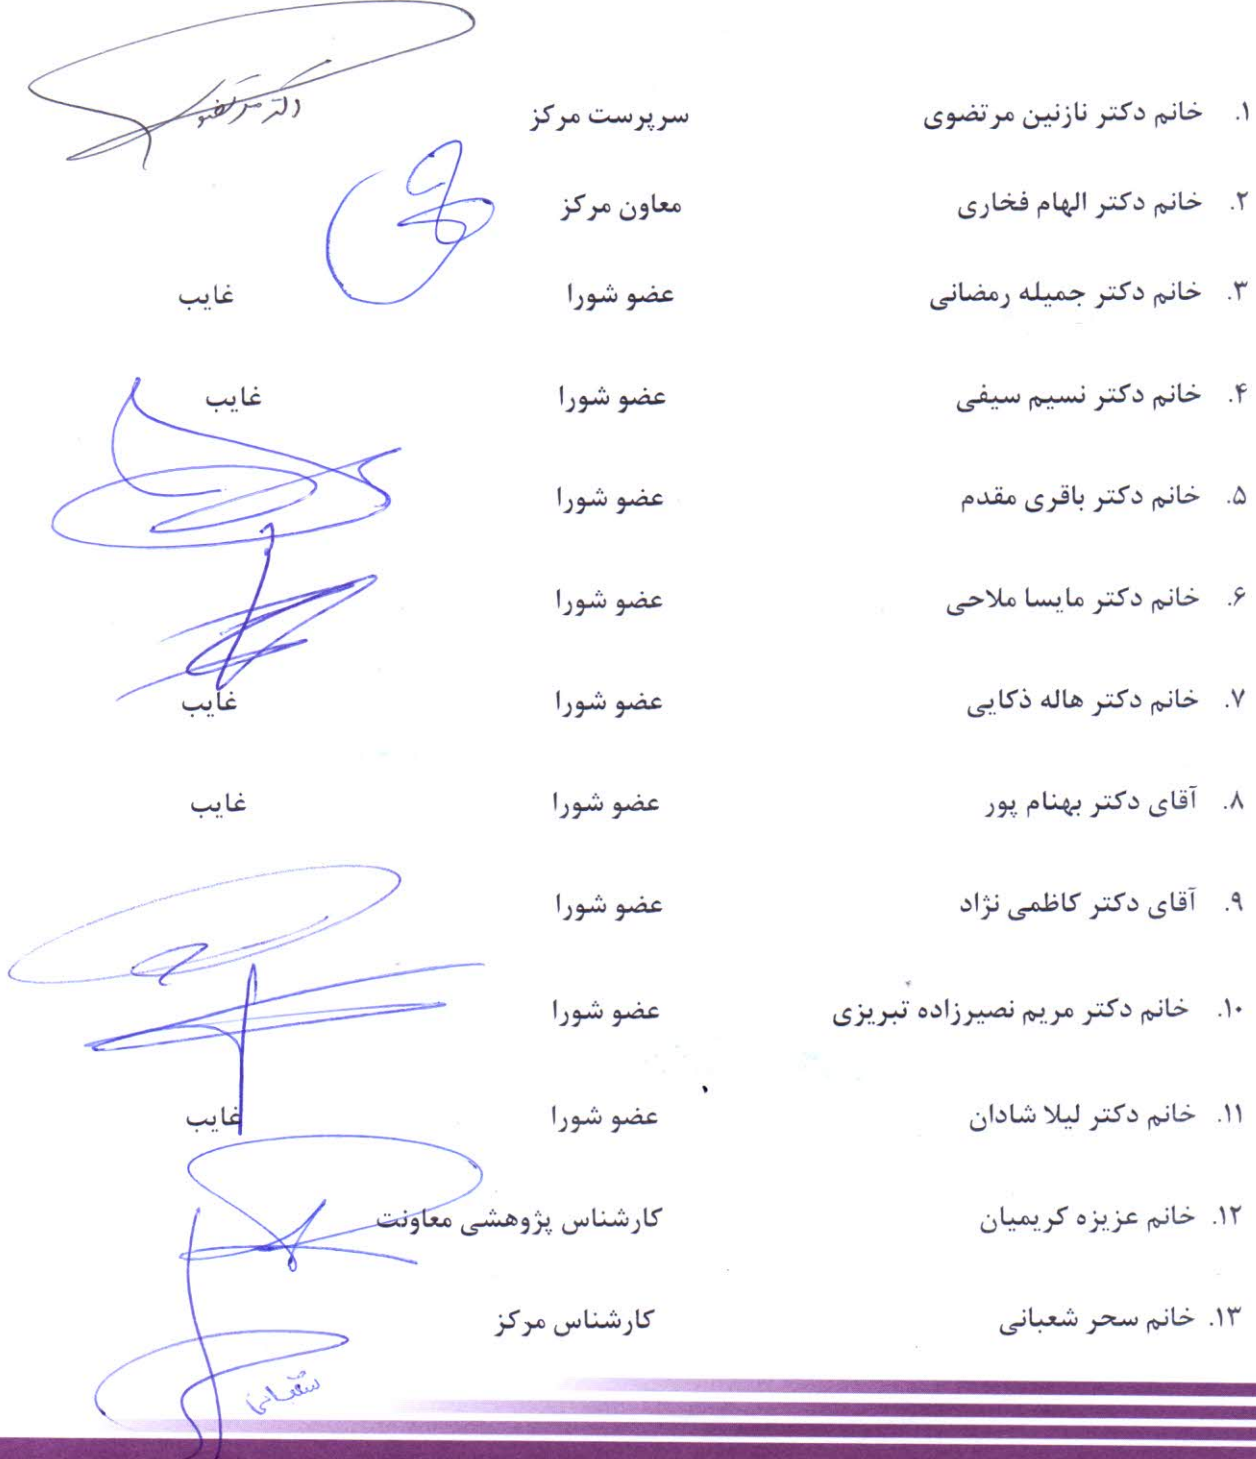 ۱. خانم دکتر نازنین مرتضوی سرپرست مرکز دکتر مرتضوی
۲. خانم دکتر الهام فخاری معاون مرکز
۳. خانم دکتر جمیله رمضانی عضو شورا غایب
۴. خانم دکتر نسیم سیفی عضو شورا غایب
۵. خانم دکتر باقری مقدم عضو شورا
۶. خانم دکتر مایسا ملاحی عضو شورا
۷. خانم دکتر هاله ذکایی عضو شورا غایب
۸. آقای دکتر بهنام پور عضو شورا غایب
۹. آقای دکتر کاظمی نژاد عضو شورا
۱۰. خانم دکتر مریم نصیرزاده تبریزی عضو شورا
۱۱. خانم دکتر لیلا شادان عضو شورا غایب
۱۲. خانم عزیزه کریمیان کارشناس پژوهشی معاونت
۱۳. خانم سحر شعبانی کارشناس مرکز
شعبانی